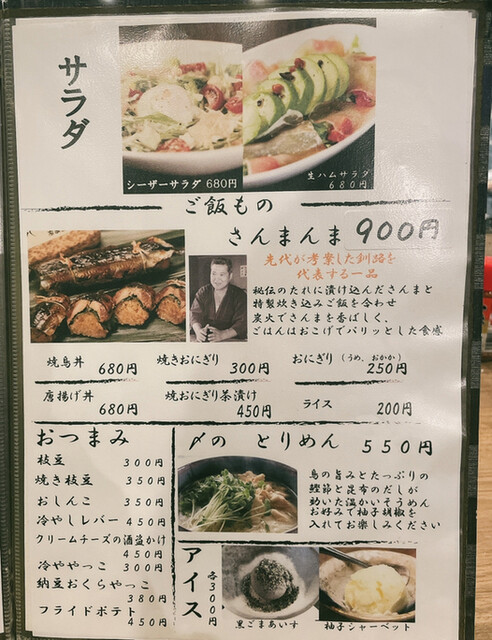 サラダ
シーザーサラダ 680円
生ハムサラダ
680円
ご飯もの
さんまんま 900円
先代が考案した釧路を
代表する一品
秘伝のたれに漬け込んださんまと
特製炊き込みご飯を合わせ
炭火でさんまを香ばしく、
ごはんはおこげでパリッとした食感
焼鳥丼 680円
焼きおにぎり 300円
おにぎり (うめ、おかか) 250円
唐揚げ丼 680円
焼おにぎり茶漬け 450円
ライス 200円
おつまみ
枝豆 300円
焼き枝豆 350円
おしんこ 350円
冷やしレバー 450円
クリームチーズの酒盗かけ
450円
冷ややっこ 300円
納豆おくらやっこ
380円
フライドポテト
450円
〆の とりめん 550円
鳥の旨みとたっぷりの
鰹節と昆布のだしが
効いた温かいそうめん
お好みで柚子胡椒を
入れてお楽しみください
アイス 各300円
黒ごまあいす
柚子シャーベット